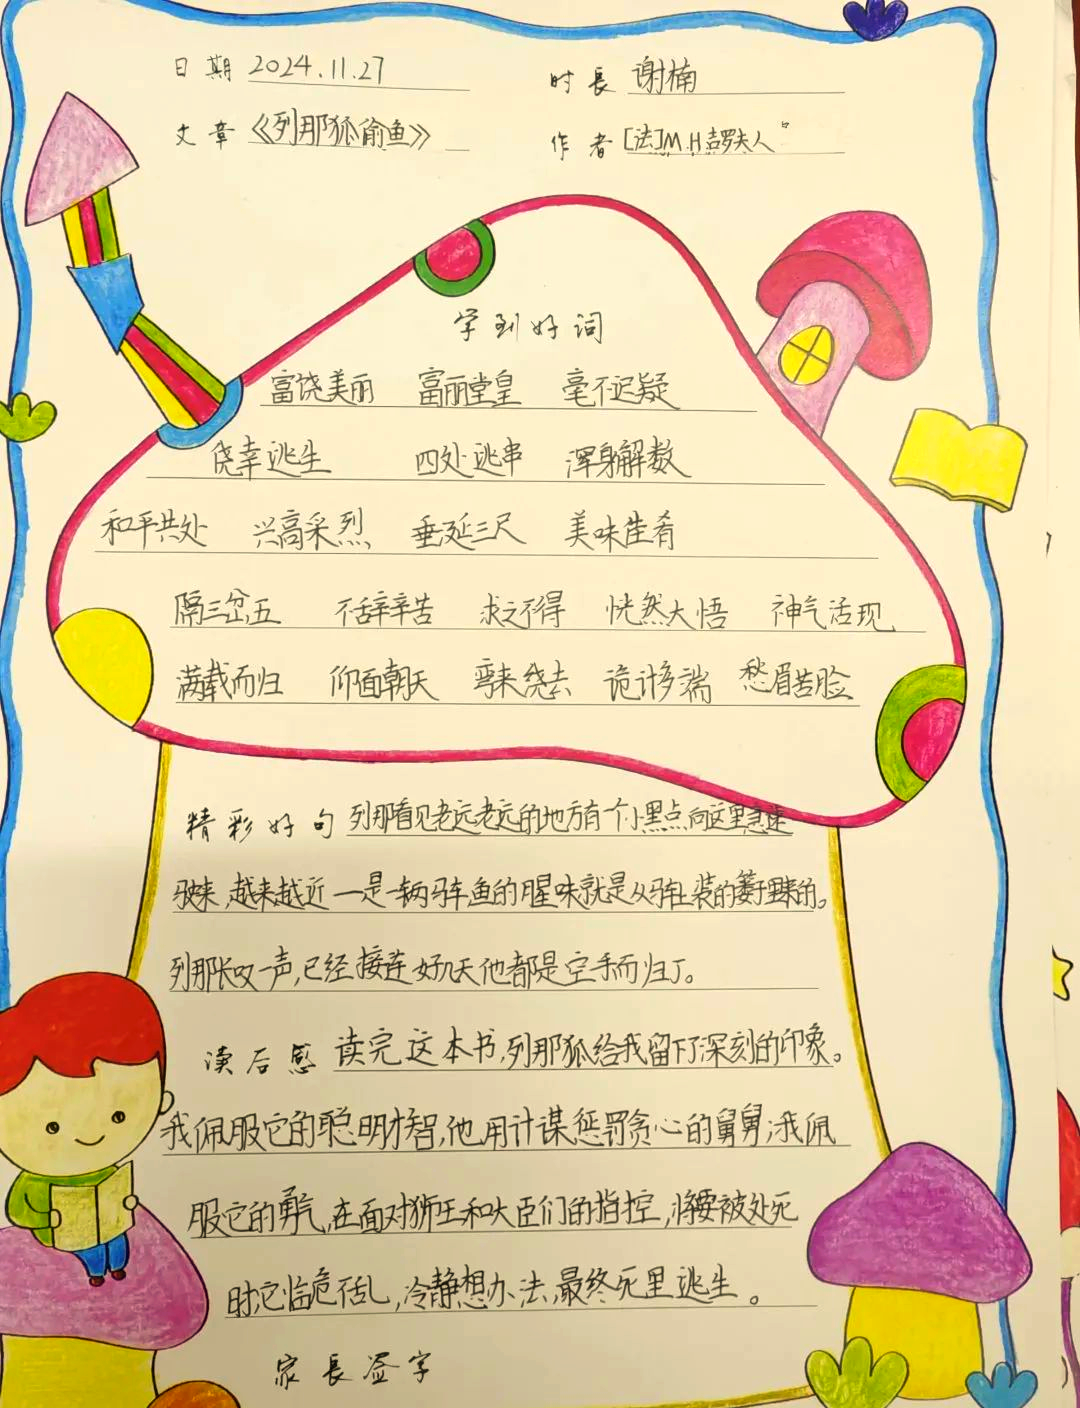 日期 2024.11.27 时長 谢楠
文章 《列那狐偷鱼》 作者 [法]M.H.吉罗夫人
学到好词
富饶美丽 富丽堂皇 毫不迟疑
侥幸逃生 四处逃串 浑身解数
和平共处 兴高采烈 垂延三尺 美味佳肴
隔三岔五 不辞辛苦 求之不得 恍然大悟 神气活现
满载而归 仰面朝天 弯来绕去 诡计多端 愁眉苦脸
精彩好句 列那看见老远老远的地方有个小黑点向这里急速
驶来,越来越近一是一辆马车,鱼的腥味就是从马车上装的篓子里来的。
列那长叹一声,已经接连好几天他都是空手而归了。
读后感 读完这本书,列那狐给我留下了深刻的印象。
我佩服它的聪明才智,他用计谋惩罚贪心的舅舅;我佩
服它的勇气,在面对狮王和大臣们的指控,将要被处死
时,它临危不乱,冷静想办法,最终死里逃生。
家長签字